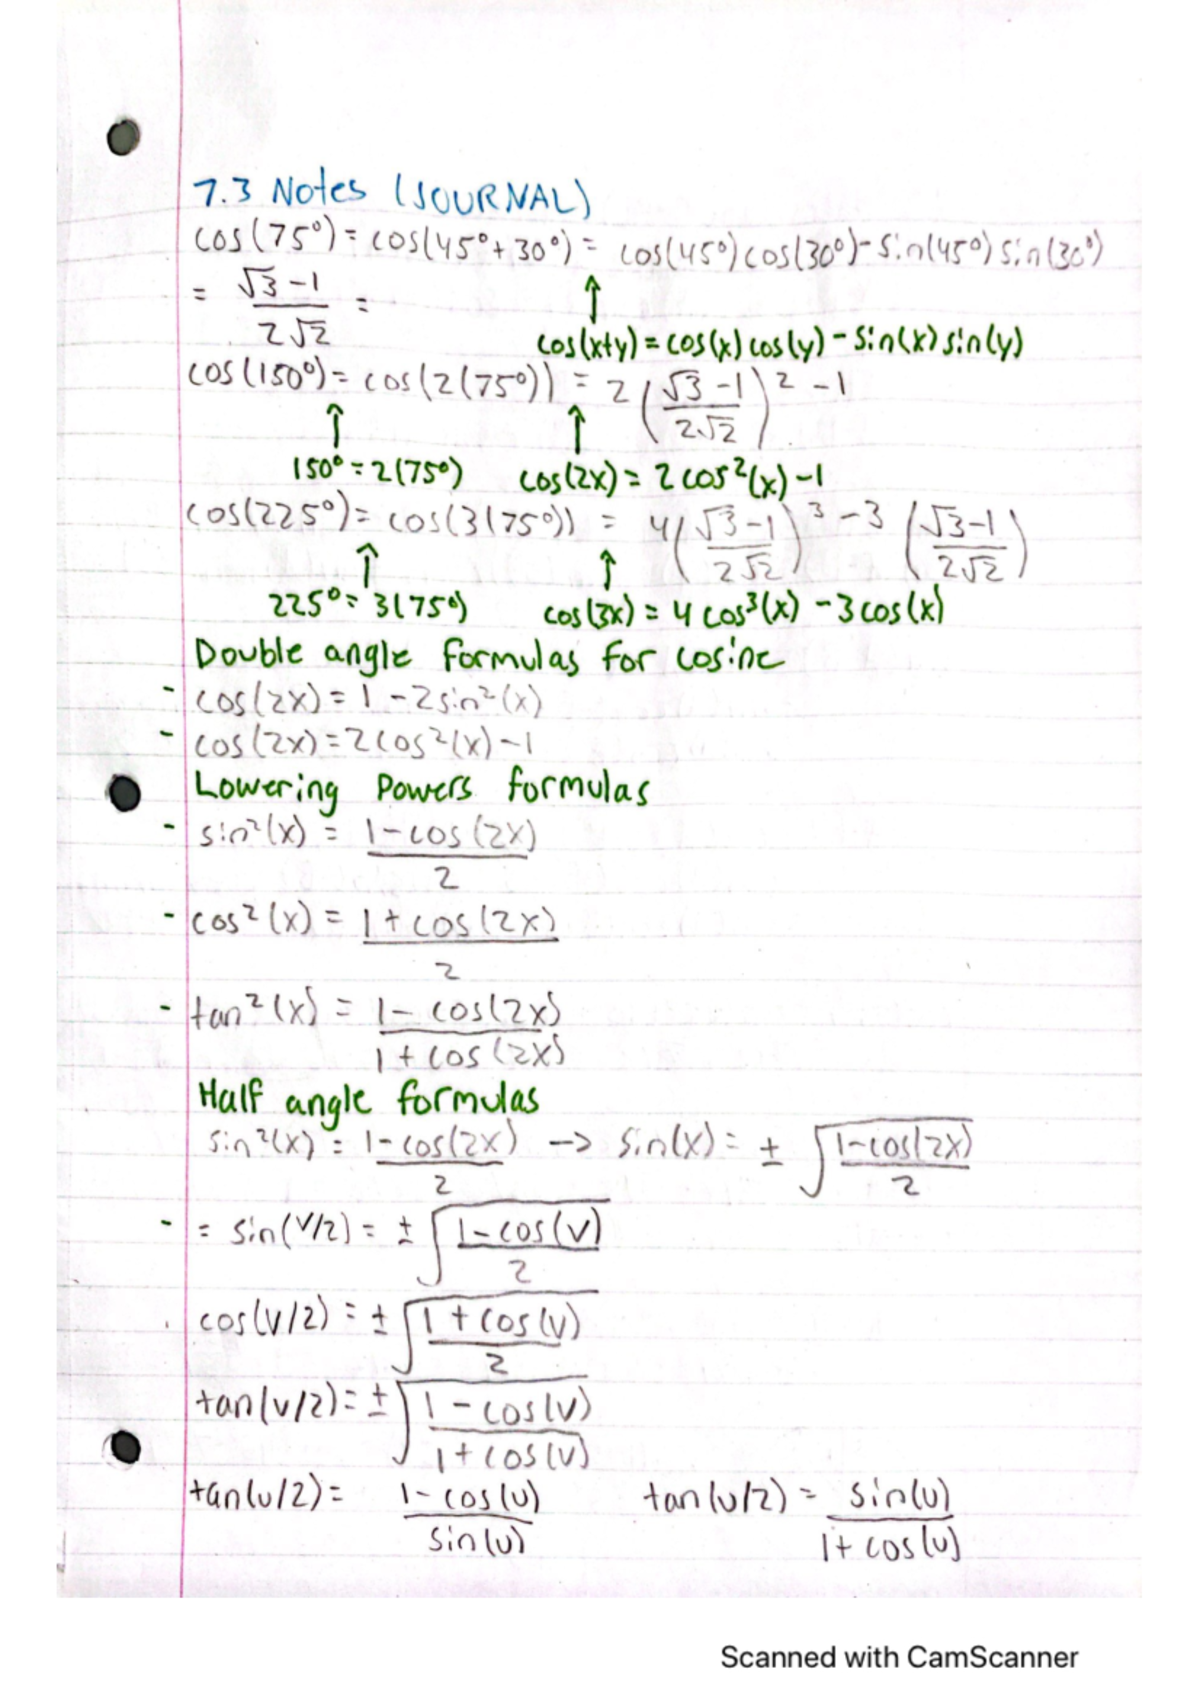 7.3 Notes (JOURNAL)
cos(75°) = cos(45°+30°) = cos(45°)cos(30°) - sin(45°) sin(30°)
= (√3 - 1)/(2√2) =
↑
cos(x+y) = cos(x) cos(y) - sin(x) sin(y)
cos(150°) = cos(2(75°)) = 2((√3 - 1)/(2√2))² - 1
↑ ↑
150° = 2(75°) cos(2x) = 2 cos²(x) - 1
cos(225°) = cos(3(75°)) = 4((√3 - 1)/(2√2))³ - 3((√3 - 1)/(2√2))
↑ ↑
225° = 3(75°) cos(3x) = 4 cos³(x) - 3 cos(x)
Double angle formulas for cosine
- cos(2x) = 1 - 2 sin²(x)
- cos(2x) = 2 cos²(x) - 1
Lowering Powers formulas
- sin²(x) = (1 - cos(2x))/2
- cos²(x) = (1 + cos(2x))/2
- tan²(x) = (1 - cos(2x))/(1 + cos(2x))
Half angle formulas
sin²(x) = (1 - cos(2x))/2 -> sin(x) = ± √((1 - cos(2x))/2)
- = sin(v/2) = ± √((1 - cos(v))/2)
cos(v/2) = ± √((1 + cos(v))/2)
tan(v/2) = ± √((1 - cos(v))/(1 + cos(v)))
tan(u/2) = (1 - cos(u))/(sin(u)) tan(u/2) = (sin(u))/(1 + cos(u))
Scanned with CamScanner